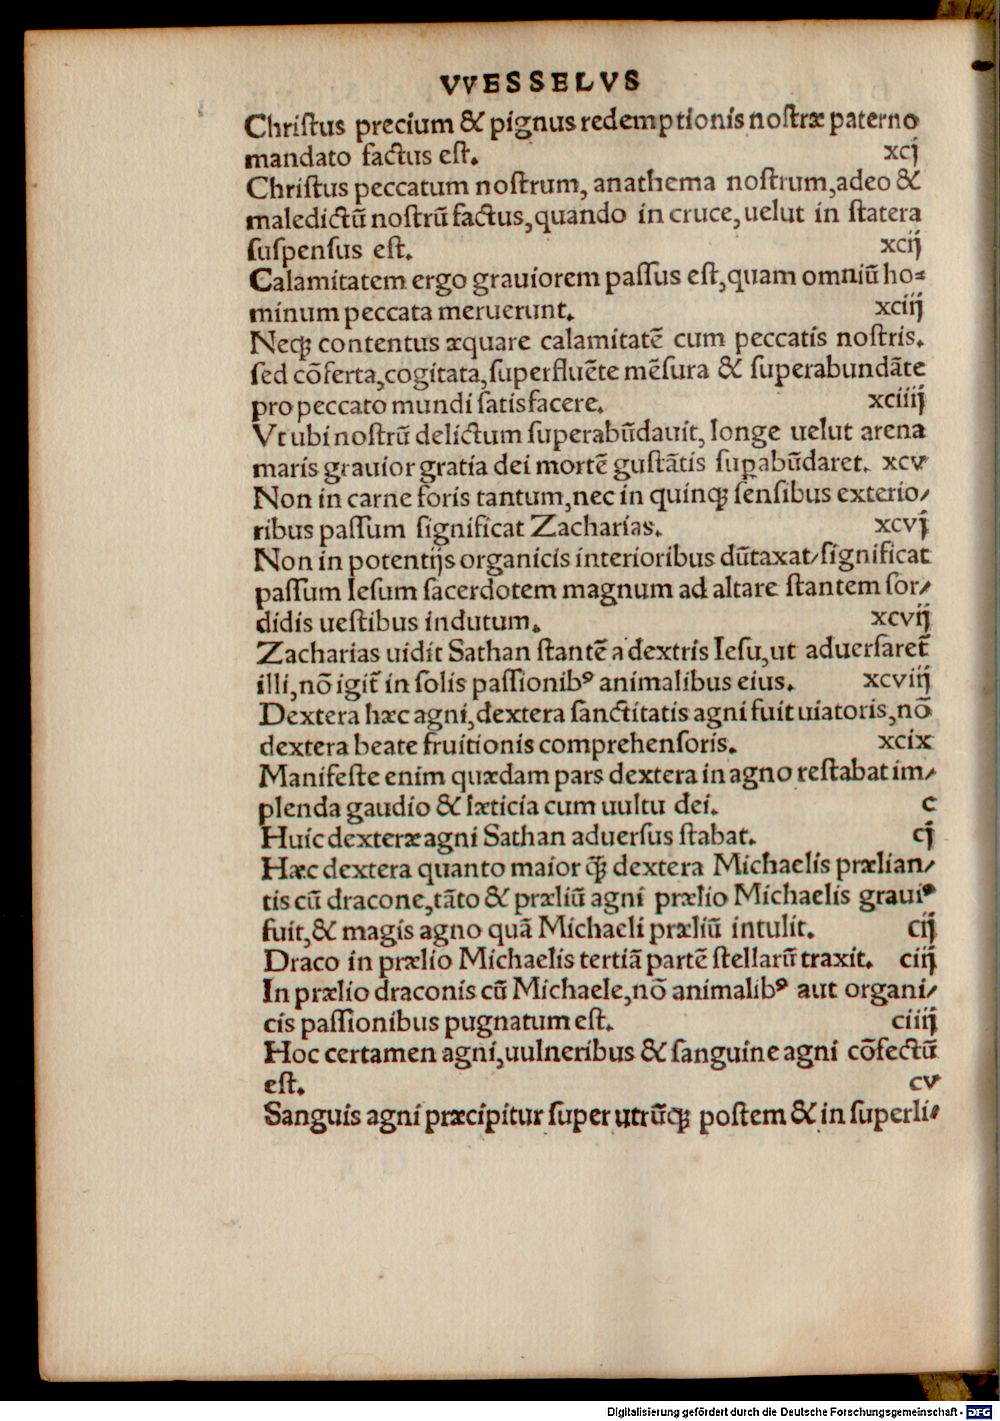 VVESSELVS
Chriſtus precium & pignus redemptionis noſtræ paterno
mandato factus eſt. xcj
Chriſtus peccatum noſtrum, anathema noſtrum,adeo &
maledictũ noſtrũ factus,quando in cruce,uelut in ſtatera
ſuſpensus eſt. xcij
Calamitatem ergo grauiorem paſſus eſt,quam omniũ ho⸗
minum peccata meruerunt. xciij
Neqꝫ contentus æquare calamitatẽ cum peccatis noſtris.
ſed cõferta,cogitata,ſuperfluẽte mẽſura & ſuperabundãte
pro peccato mundi ſatisfacere. xciiij
Vt ubi noſtrũ delictum ſuperabũdauit, longe uelut arena
maris grauior gratia dei mortẽ guſtãtis ſuꝑabũdaret. xcv
Non in carne foris tantum,nec in quinqꝫ ſenſibus exterio/
ribus paſſum ſignificat Zacharias. xcvj
Non in potentijs organicis interioribus dũtaxat/ſignificat
paſſum Ieſum ſacerdotem magnum ad altare ſtantem ſor/
didis ueſtibus indutum. xcvij
Zacharias uidit Sathan ſtantẽ a dextris Ieſu,ut aduerſaret̃
illi,nõ igit̃ in ſolis paſſionibꝰ animalibus eius. xcviij
Dextera hæc agni,dextera ſanctitatis agni fuit uiatoris,nõ
dextera beate fruitionis comprehenſoris. xcix
Manifeſte enim quædam pars dextera in agno reſtabat im/
plenda gaudio & læticia cum uultu dei. c
Huic dexteræ agni Sathan aduerſus ſtabat. cj
Hæc dextera quanto maior qꝫ̃ dextera Michaelis prælian/
tis cũ dracone,tãto & præliũ agni prælio Michaelis grauiꝰ
fuit,& magis agno quã Michaeli præliũ intulit. cij
Draco in prælio Michaelis tertiã partẽ ſtellarũ traxit. ciij
In prælio draconis cũ Michaele,nõ animalibꝰ aut organi/
cis paſſionibus pugnatum eſt. ciiij
Hoc certamen agni,uulneribus & ſanguine agni cõfectũ
eſt. cv
Sanguis agni præcipitur ſuper utrũqꝫ poſtem & in ſuperli/
Digitalisierung gefördert durch die Deutsche Forschungsgemeinschaft - DFG